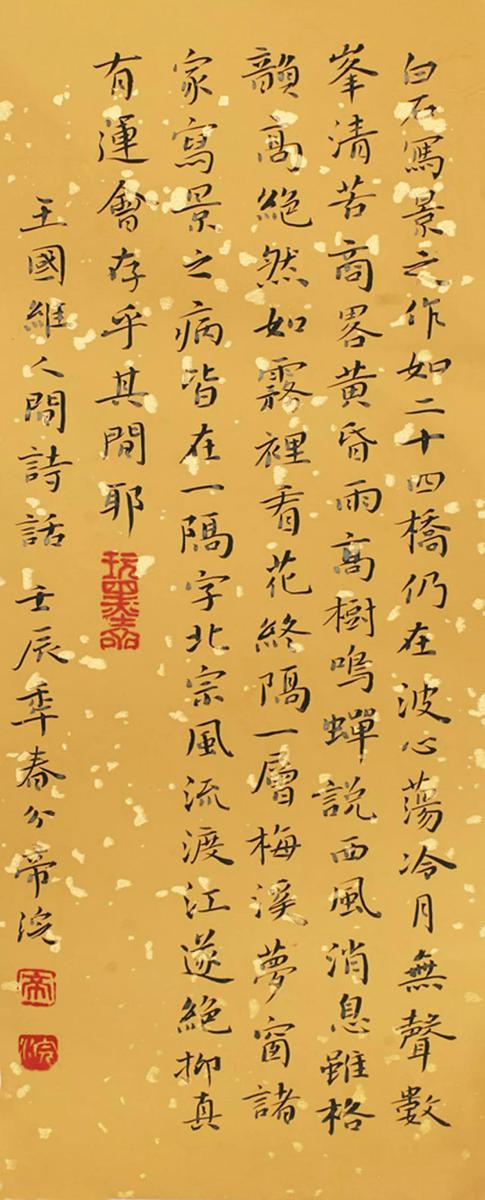 白石寫景之作如二十四橋仍在波心蕩冷月無聲數
峯清苦商畧黃昏雨高樹鳴蟬說西風消息雖格
韻高絕然如霧裡看花終隔一層梅溪夢窗諸
家寫景之病皆在一隔字北宗風流渡江遂絕抑真
有運會存乎其間耶
王國維人間詩話 壬辰秊春分帝浣
帝
浣